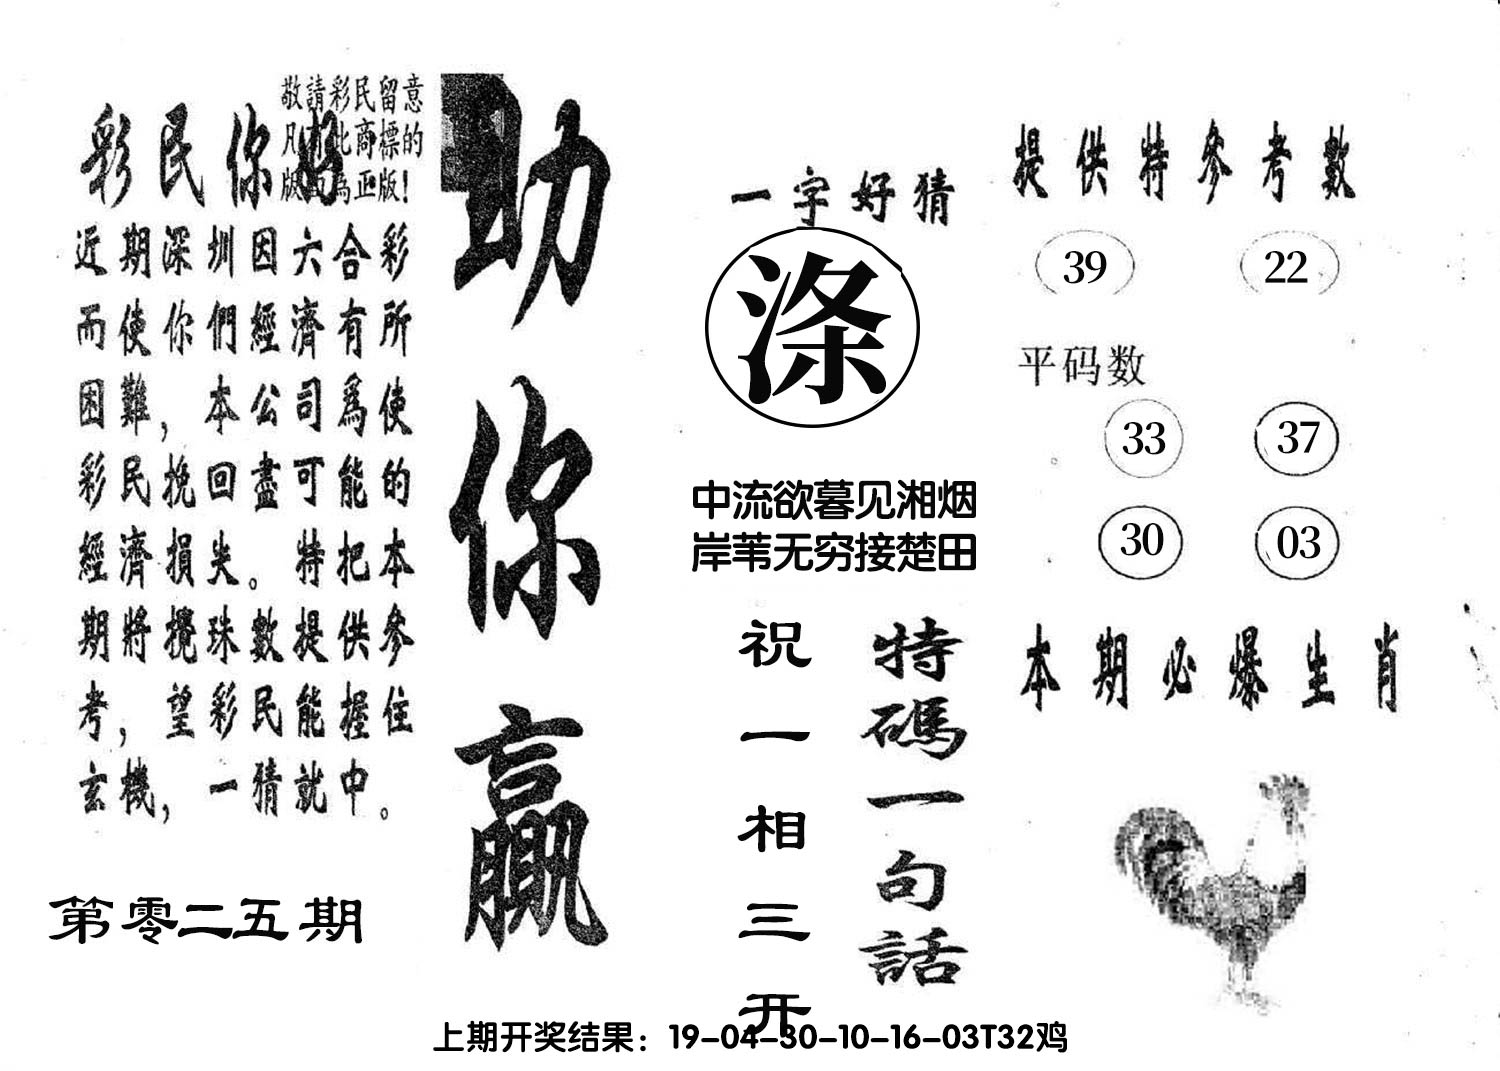 敬請彩民留意
凡有此商標的
版面為正版！
彩民你好
近期深圳因六合彩
而使你們經濟有所
困難，本公司爲使
彩民挽回盡可能的
經濟損失。特把本
期將攪珠數提供參
考，望彩民能握住
玄機，一猜就中。
第零二五期
助你贏
一字好猜
涤
中流欲暮见湘烟
岸苇无穷接楚田
特碼一句話
祝一相三开
提供特參考數
39 22
平码数
33 37
30 03
本期必爆生肖
上期开奖结果：19-04-30-10-16-03T32鸡